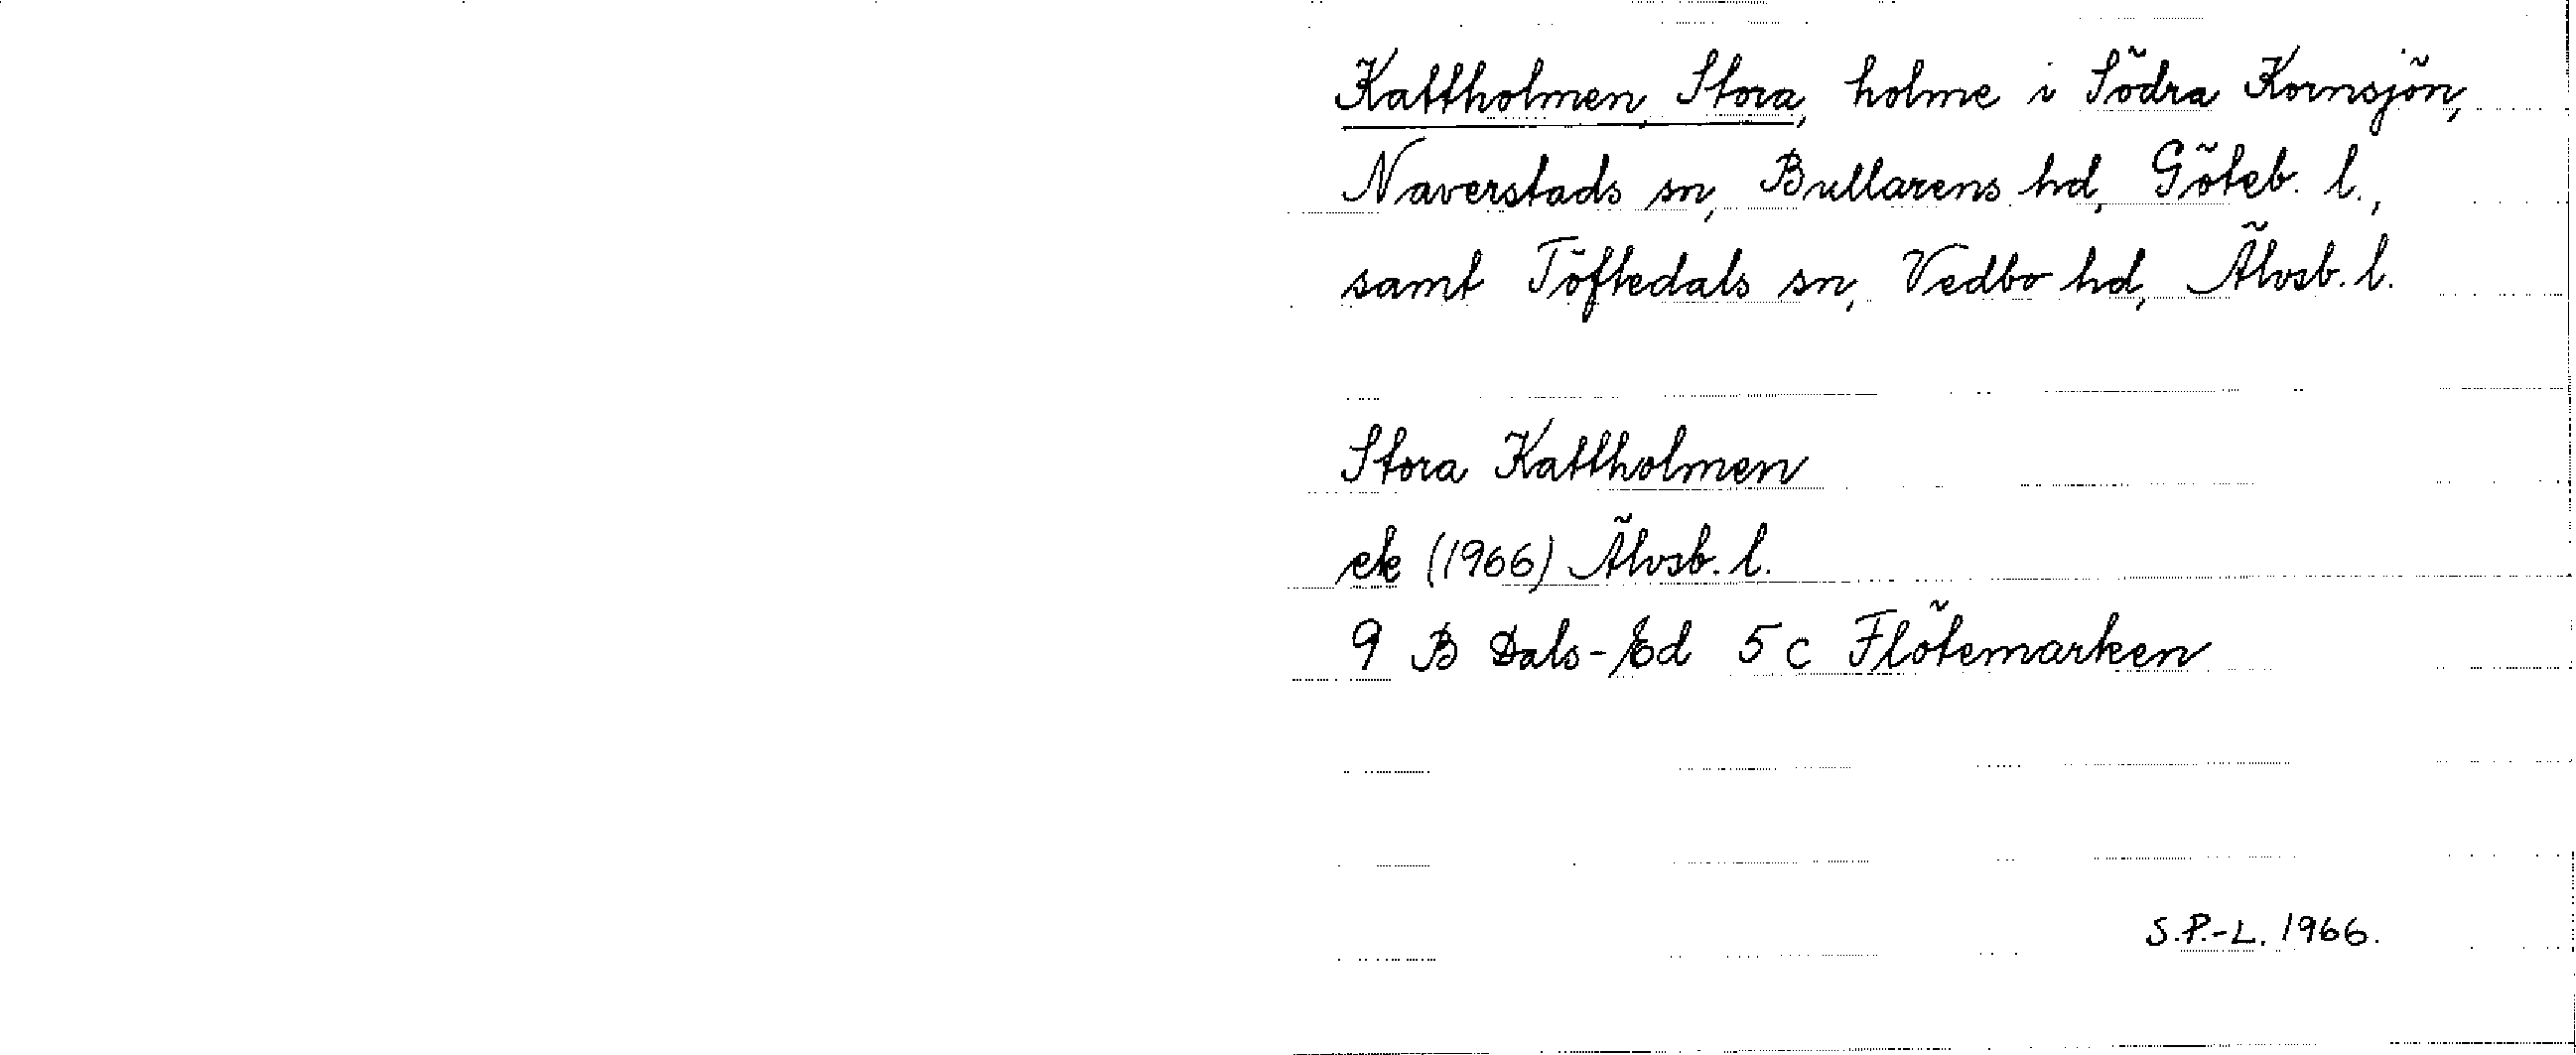 Kattholmen, Stora, holme i Södra Kornsjön,
Naverstads sn, Bullarens hd, Göteb. l.,
samt Töftedals sn, Vedbo hd, Älvsb. l.
Stora Kattholmen
ek (1966) Älvsb. l.
9 B Dals-Ed 5 c Flötemarken
S.P.-L. 1966.